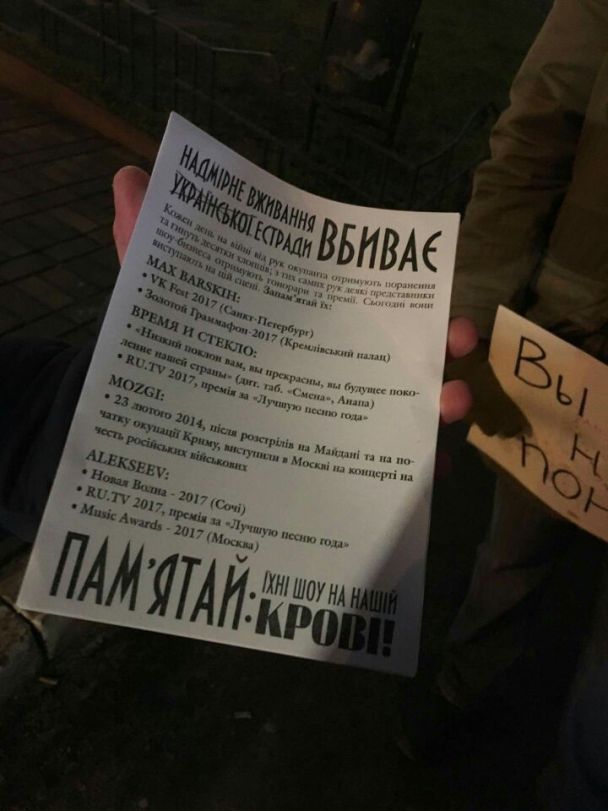 НАДМІРНЕ ВЖИВАННЯ
УКРАЇНСЬКОЇ ЕСТРАДИ ВБИВАЄ
Кожен день на війні від рук окупанта отримують поранення
та гинуть десятки хлопців; з тих самих рук деякі представники
шоу-бизнеса отримують гонорари та премії. Сьогодні вони
виступають на цій сцені. Запам'ятай їх:
MAX BARSKIH:
• VK Fest 2017 (Санкт-Петербург)
• Золотой Граммафон-2017 (Кремлівський палац)
ВРЕМЯ И СТЕКЛО:
• «Низкий поклон вам, вы прекрасны, вы будущее поко-
ление нашей страны» (дит. таб. «Смена», Анапа)
• RU.TV 2017, премія за «Лучшую песню года»
MOZGI:
• 23 лютого 2014, після розстрілів на Майдані та на по-
чатку окупації Криму, виступили в Москві на концерті на
честь російських військових
ALEKSEEV:
• Новая Волна - 2017 (Сочі)
• RU.TV 2017, премія за «Лучшую песню года»
• Music Awards - 2017 (Москва)
ПАМ'ЯТАЙ: ЇХНІ ШОУ НА НАШІЙ
КРОВІ!
Вы